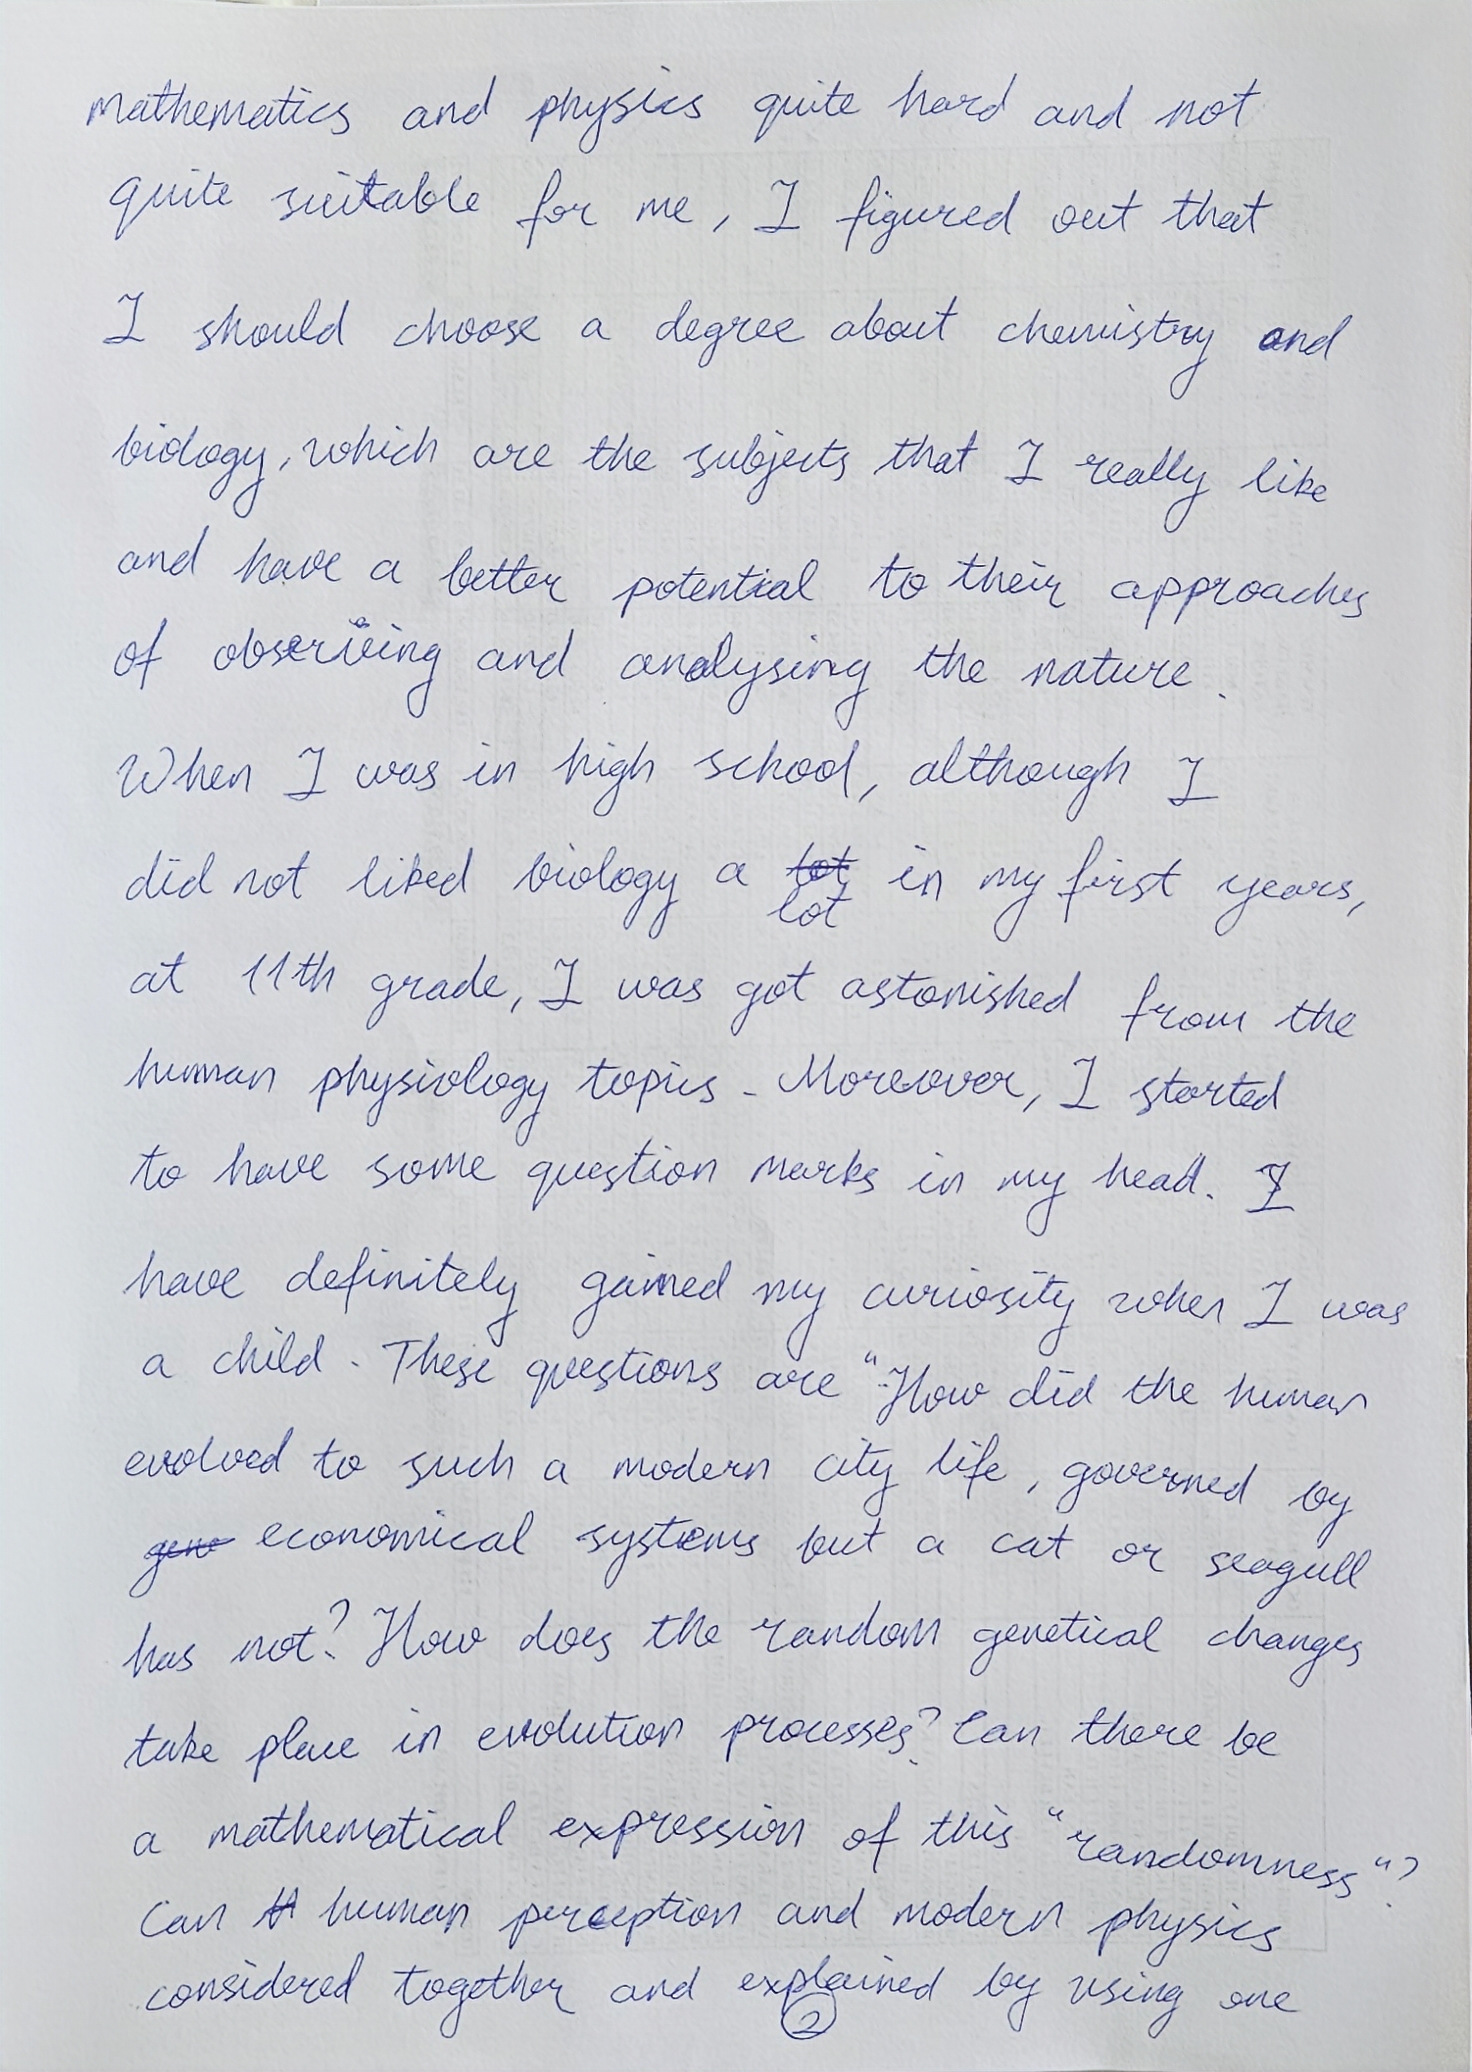 mathematics and physics quite hard and not
quite suitable for me, I figured out that
I should choose a degree about chemistry and
biology, which are the subjects that I really like
and have a better potential to their approaches
of observing and analysing the nature.
When I was in high school, although I
did not liked biology a lot in my first years,
at 11th grade, I was got astonished from the
human physiology topics. Moreover, I started
to have some question marks in my head. I
have definitely gained my curiosity when I was
a child. These questions are "How did the human
evolved to such a modern city life, governed by
economical systems but a cat or seagull
has not? How does the random genetical changes
take place in evolution processes? Can there be
a mathematical expression of this "randomness"?
Can human perception and modern physics
considered together and explained by using one
2